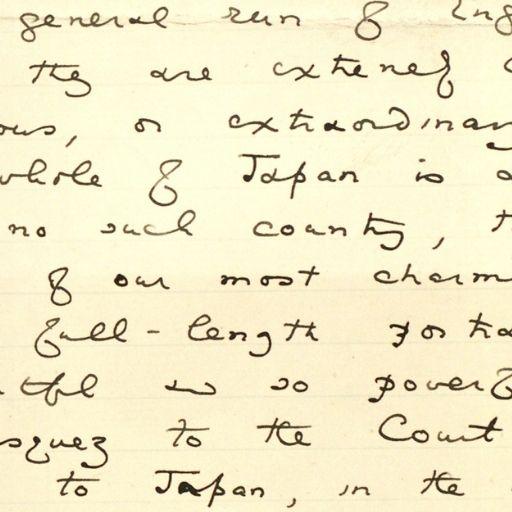 general run of Eng
they are extremely
ous, or extraordinary
whole of Japan is a
no such country, t
of our most charm
full-length portra
so powerf
squez to the Court
to Japan, in the